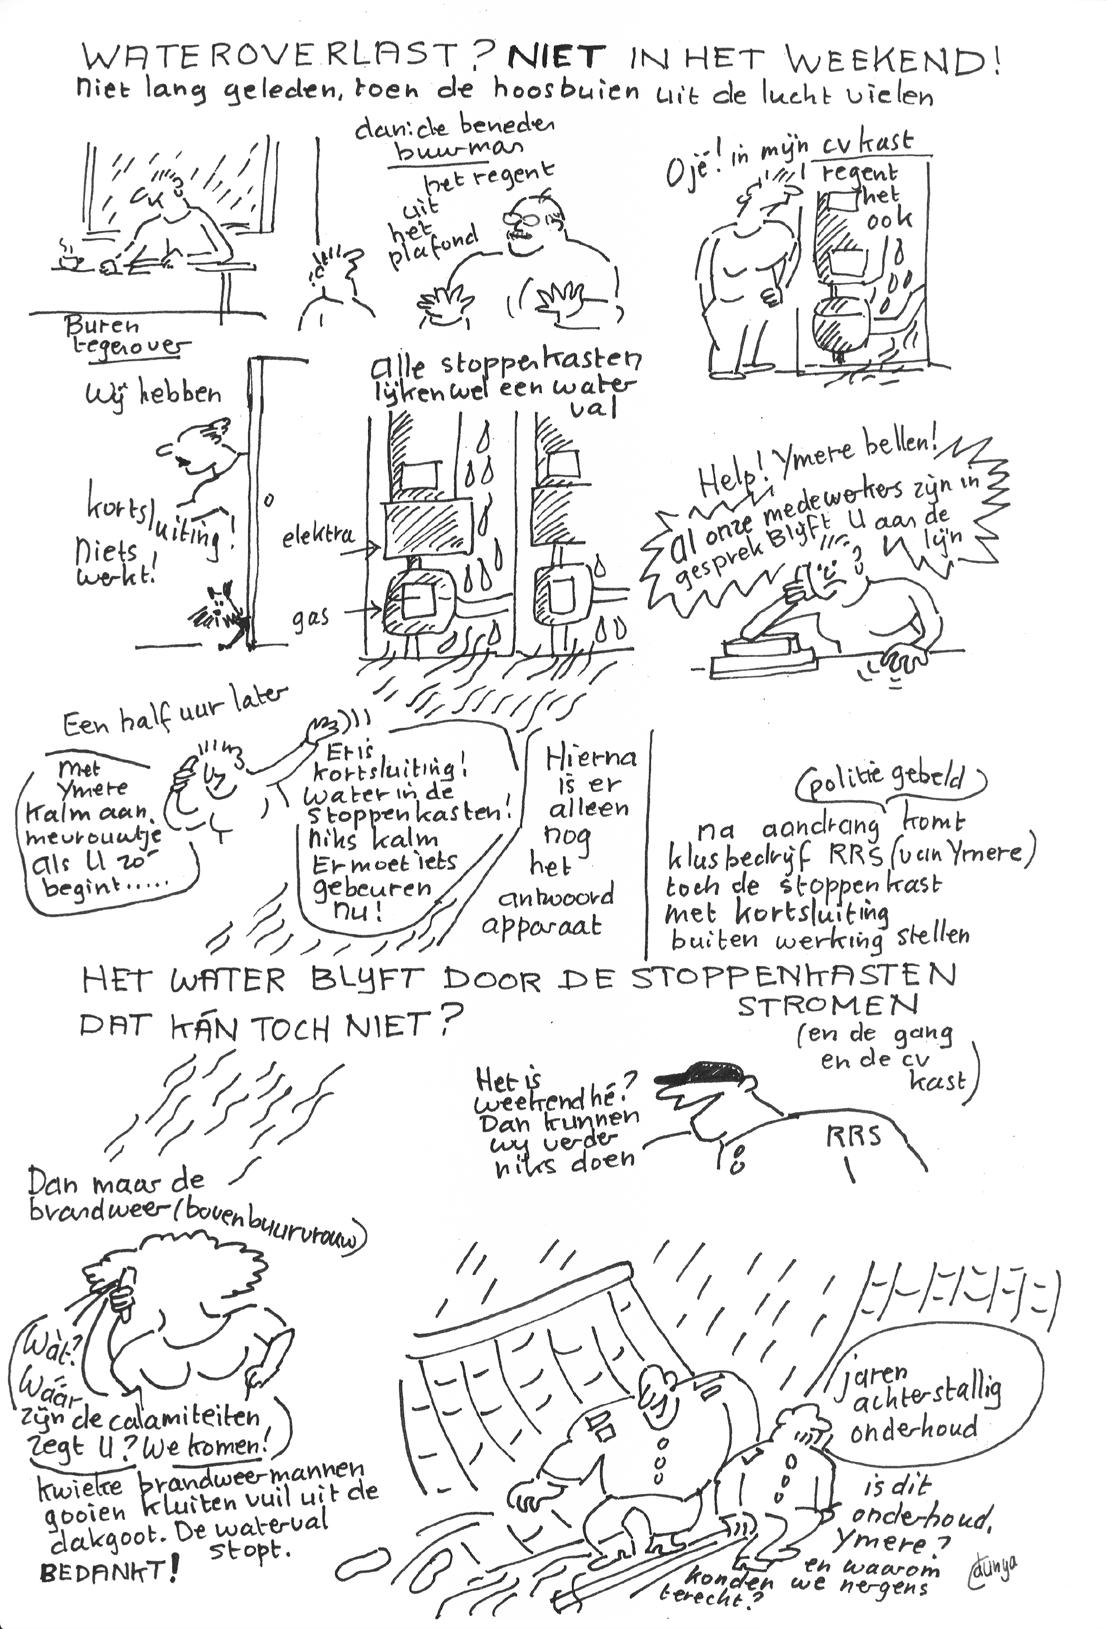 WATEROVERLAST? NIET IN HET WEEKEND!
Niet lang geleden, toen de hoosbuien uit de lucht vielen
dan: de beneden
buurman
het regent
uit
het
plafond
Ojé! in mijn cv kast
regent
het
ook
Buren
tegenover
Wij hebben
kortsluiting!
Niets
werkt!
alle stoppenkasten
lijken wel een water
val
elektra
gas
Help! Ymere bellen!
al onze medewerkers zijn in
gesprek Blijft U aan de
lijn
Een half uur later
Met
Ymere
Kalm aan,
mevrouwtje
als U zó
begint.....
Er is
kortsluiting!
Water in de
stoppenkasten!
niks kalm
Er moet iets
gebeuren
nu!
Hierna
is er
alleen
nog
het
antwoord
apparaat
(politie gebeld)
na aandrang komt
klusbedrijf RRS (van Ymere)
toch de stoppenkast
met kortsluiting
buiten werking stellen
HET WATER BLIJFT DOOR DE STOPPENKASTEN
STROMEN
(en de gang
en de cv
kast)
DAT KÁN TOCH NIET?
Het is
weekend hé?
Dan kunnen
wij verder
niks doen
RRS
Dan maar de
brandweer (bovenbuurvrouw)
Wàt?
Wáár
zijn de calamiteiten
zegt U? We komen!
kwieke brandweermannen
gooien kluiten vuil uit de
dakgoot. De waterval
stopt.
BEDANKT!
jaren
achterstallig
onderhoud
is dit
onderhoud,
Ymere?
en waarom
konden we nergens
terecht?
daunya